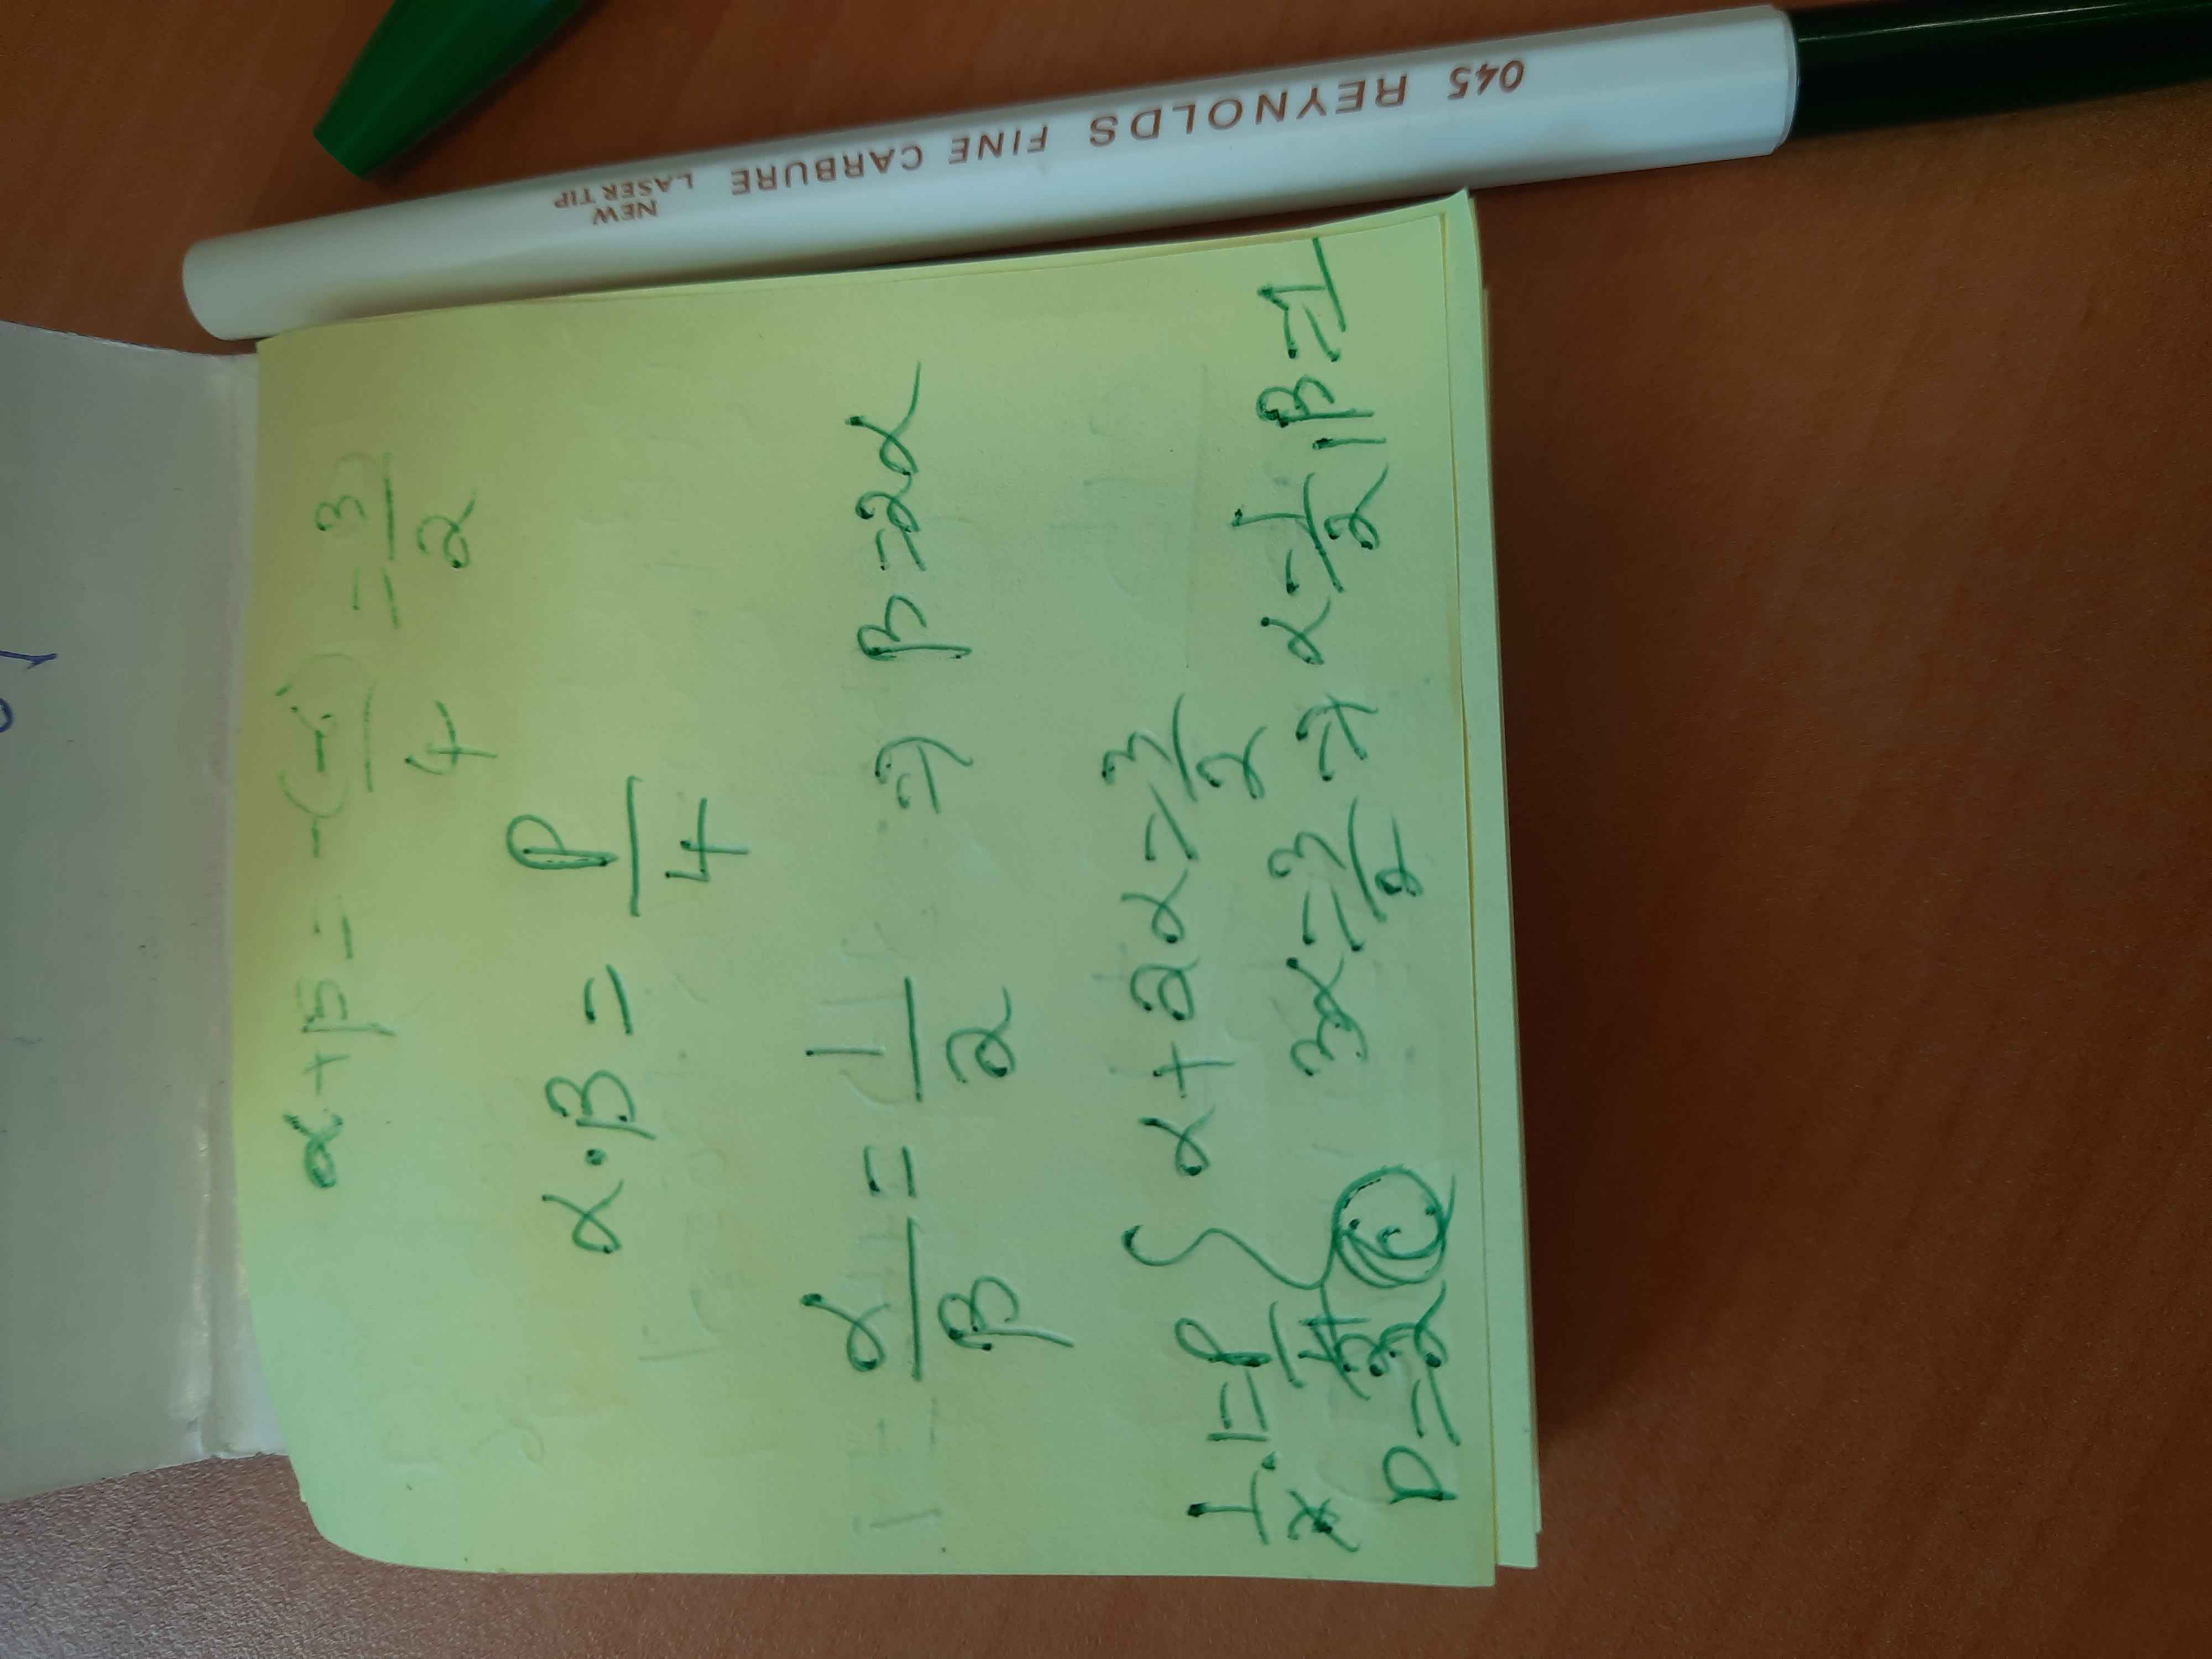 045 REYNOLDS FINE CARBURE
NEW
LASER TIP
α+β = -(-6)/4 = 3/2
α·β = p/4
α/β = 1/2 ⇒ β=2α
α+2α=3/2
3α=3/2 ⇒ α=1/2, β=1
1/2·1=p/4
p=2